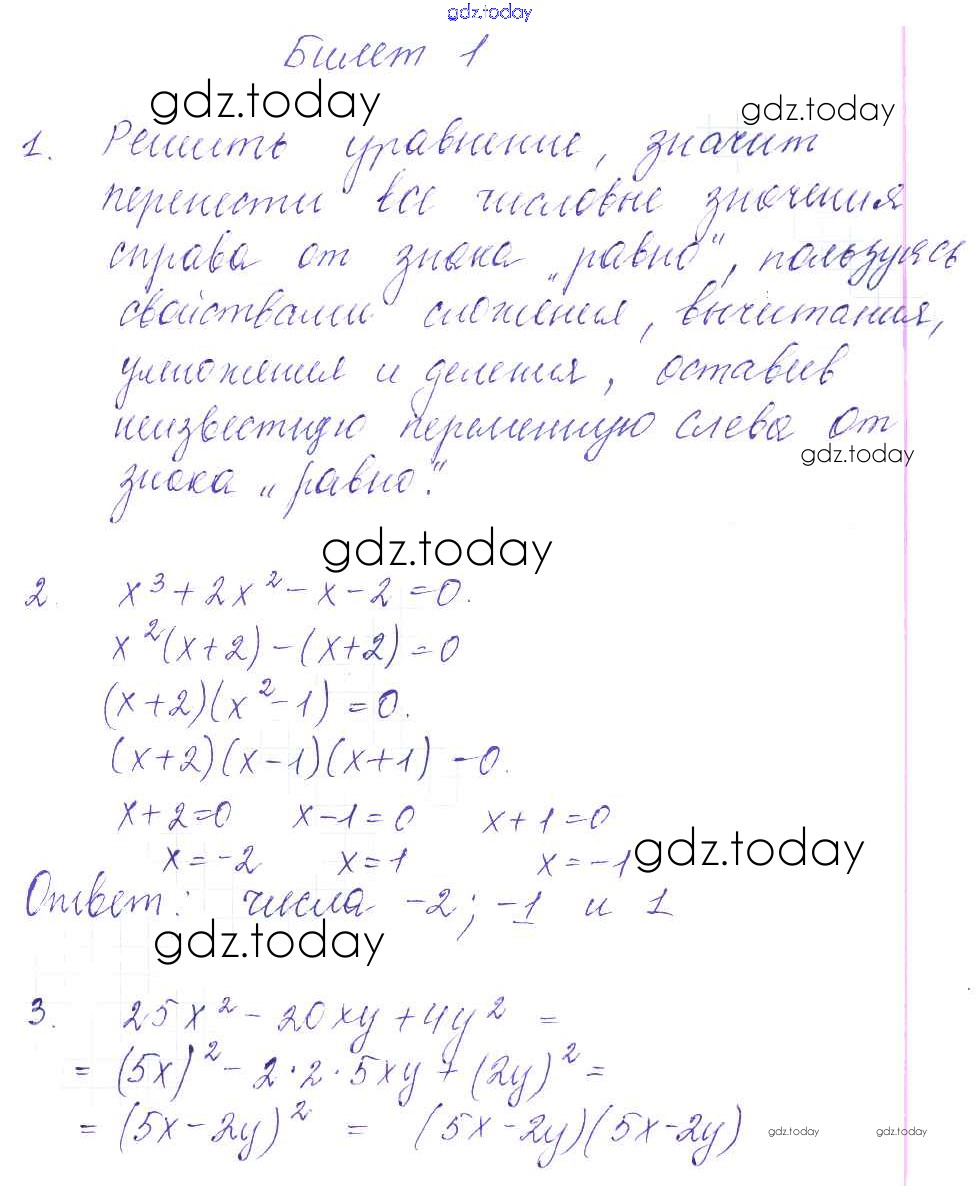 gdz.today
Билет 1
gdz.today gdz.today
1. Решить уравнение, значит
перенести все числовые значения
справа от знака „равно", пользуясь
свойствами сложения, вычитания,
умножения и деления, оставив
неизвестную переменную слева от
gdz.today
знака „равно".
gdz.today
2. x³ + 2x² - x - 2 = 0.
x²(x+2) - (x+2) = 0
(x+2)(x²-1) = 0.
(x+2)(x-1)(x+1) = 0.
x+2=0 x-1=0 x+1=0
x=-2 x=1 x=-1
gdz.today
Ответ: числа -2; -1 и 1
gdz.today
3. 25x² - 20xy + 4y² =
= (5x)² - 2·2·5xy + (2y)² =
= (5x-2y)² = (5x-2y)(5x-2y)
gdz.today gdz.today